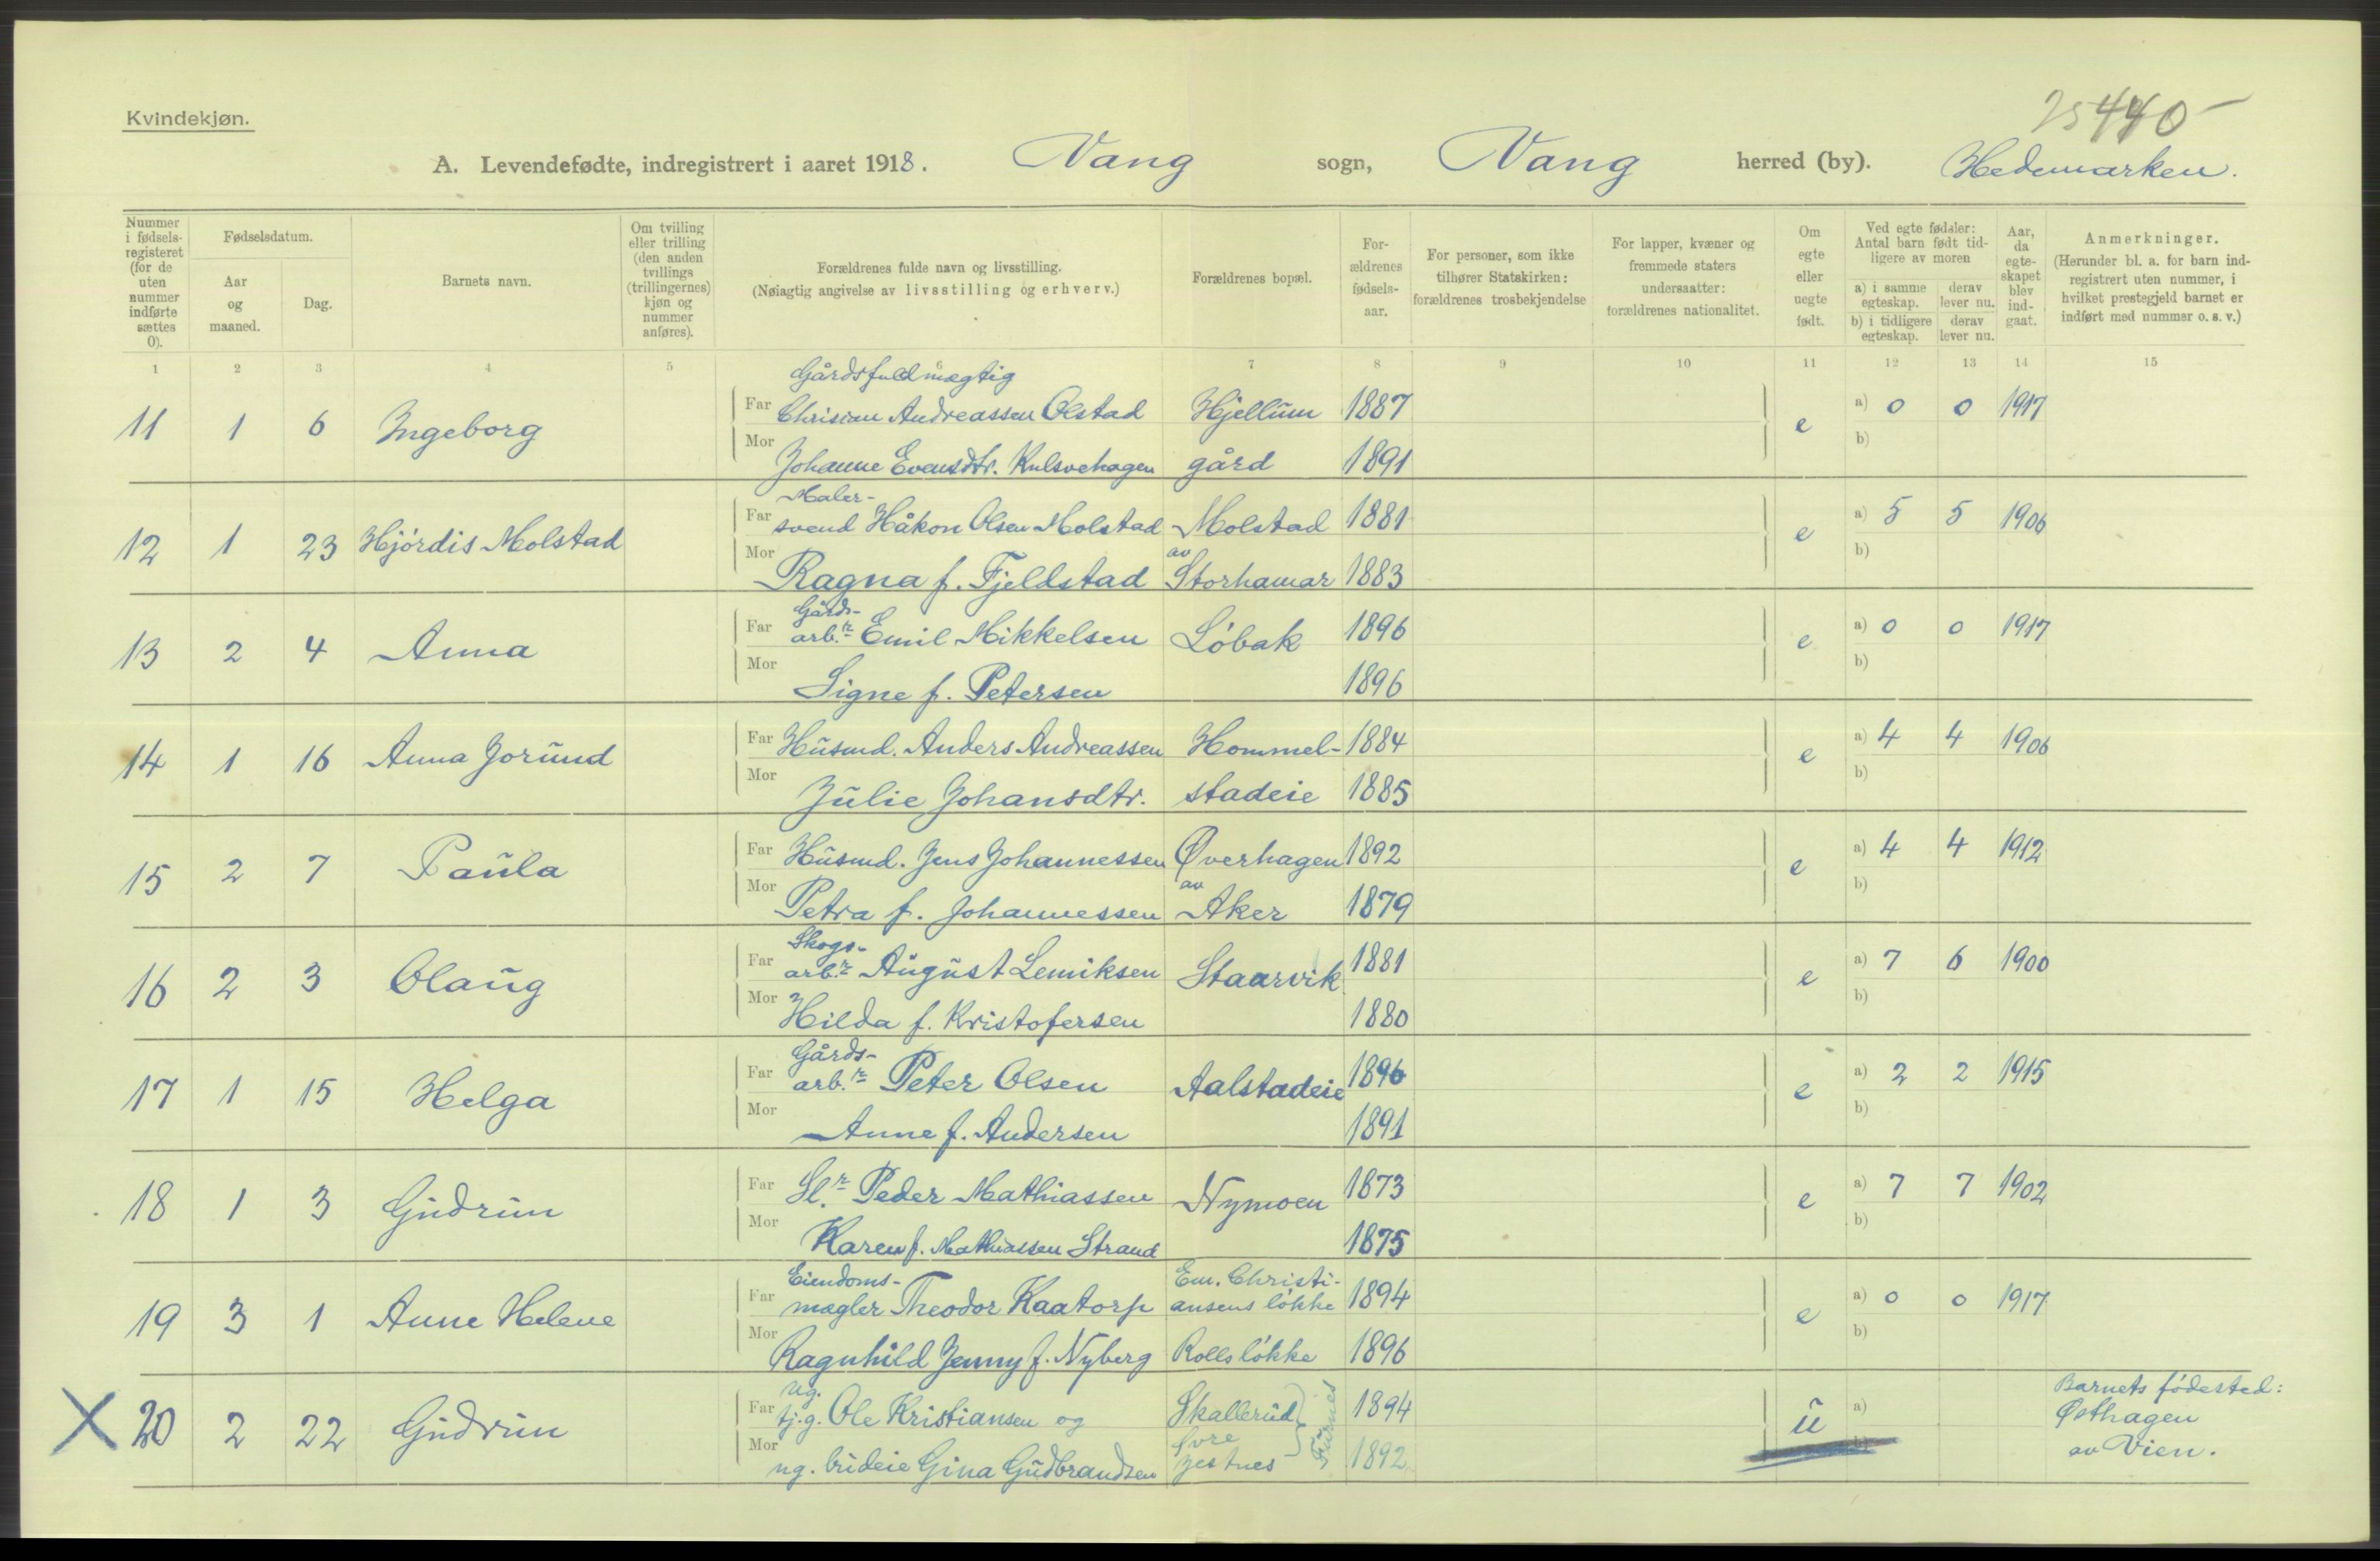 Kvindekjøn.
25440
A. Levendefødte, indregistrert i aaret 1918. Vang sogn, Vang herred (by). Hedemarken.
Nummer i fødsels-registeret (for de uten nummer indførte sættes 0).
Fødselsdatum.
Aar og maaned.
Dag.
Barnets navn.
Om tvilling eller trilling (den anden tvillings (trillingernes) kjøn og nummer anføres).
Forældrenes fulde navn og livsstilling.
(Nøiagtig angivelse av livsstilling og erhverv.)
Forældrenes bopæl.
For-ældrenes fødsels-aar.
For personer, som ikke tilhører Statskirken: forældrenes trosbekjendelse
For lapper, kvæner og fremmede staters undersaatter: forældrenes nationalitet.
Om egte eller uegte født.
Ved egte fødsler: Antal barn født tid-ligere av moren
a) i samme egteskap. derav lever nu.
b) i tidligere egteskap. derav lever nu.
Aar, da egte-skapet blev ind-gaat.
Anmerkninger.
(Herunder bl. a. for barn ind-registrert uten nummer, i hvilket prestegjeld barnet er indført med nummer o. s. v.)
1 2 3 4 5 6 7 8 9 10 11 12 13 14 15
Gårdsfuldmægtig
11 1 6 Ingeborg Far Chrisian Andreassen Olstad Hjellum 1887 e a) 0 0 1917
Mor Johanne Evensdtr. Kulsvehagen gård 1891 b)
Maler-
12 1 23 Hjördis Molstad Far svend Håkon Olsen Molstad Molstad 1881 e a) 5 5 1906
Mor Ragna f. Fjeldstad av Storhamar 1883 b)
Gårds-
13 2 4 Anna Far arb.r Emil Mikkelsen Löbak 1896 e a) 0 0 1917
Mor Signe f. Petersen 1896 b)
14 1 16 Anna Jorund Far Husmd. Anders Andreassen Hommel- 1884 e a) 4 4 1906
Mor Julie Johansdtr. stadeie 1885 b)
15 2 7 Paula Far Husmd. Jens Johannessen Øverhagen 1892 e a) 4 4 1912
Mor Petra f. Johannessen av Aker 1879 b)
Skogs-
16 2 3 Olaug Far arb.r August Lemiksen Staarvik 1881 e a) 7 6 1900
Mor Hilda f. Kristofersen 1880 b)
Gårds-
17 1 15 Helga Far arb.r Peter Olsen Aalstadeie 1896 e a) 2 2 1915
Mor Anne f. Andersen 1891 b)
18 1 3 Gudrun Far Sl.r Peder Mathiassen Nymoen 1873 e a) 7 7 1902
Mor Karen f. Mathiassen Strand 1875 b)
Eiendoms- Em. Christi-
19 3 1 Anne Helene Far mægler Theodor Kaatorp ansens lökke 1894 e a) 0 0 1917
Mor Ragnhild Jenny f. Nyberg Rolls lökke 1896 b)
ug.
X 20 2 22 Gudrun Far tj.g. Ole Kristiansen og Skallerud 1894 u a) Barnets födested:
Østhagen
Mor ug. budeie Gina Gudbrandsen Jestnes Furnes 1892 b) av Vien.